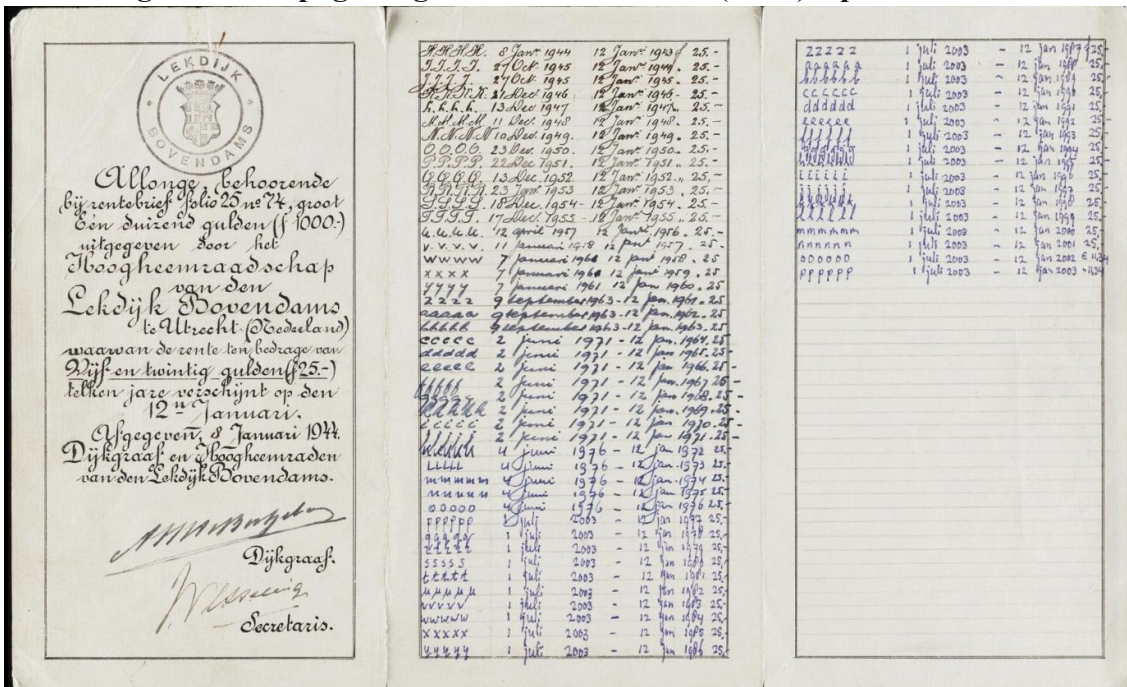 LEKDIJK BOVENDAMS
Allonge, behoorende
bij rentebrief folio 25 nº 74, groot
Een duizend gulden (ƒ 1000.-)
uitgegeven door het
Hoogheemraadschap
van den
Lekdijk Bovendams
te Utrecht (Nederland)
waarvan de rente ten bedrage van
Vijf en twintig gulden (ƒ 25.-)
telken jare verschijnt op den
12n Januari.
Afgegeven, 8 Januari 1944.
Dijkgraaf en Hoogheemraden
van den Lekdijk Bovendams.
Dijkgraaf.
Secretaris.
H.H.H.H. 8 Janr 1944 12 Janr 1943 ƒ 25.-
I.I.I.I. 27 Oct. 1945 12 Janr 1944. 25.-
J.J.J.J. 27 Oct. 1945 12 Janr 1945. 25.-
K.K.K.K. 21 Dec. 1946 12 Janr 1946. 25.-
L.L.L.L. 13 Dec. 1947 12 Janr 1947. 25.-
M.M.M.M. 11 Dec. 1948 12 Janr 1948. 25.-
N.N.N.N. 10 Dec. 1949. 12 Janr 1949. 25.-
O.O.O.O. 23 Dec. 1950. 12 Janr 1950. 25.-
P.P.P.P. 22 Dec. 1951. 12 Janr 1951. 25.-
Q.Q.Q.Q. 13 Dec. 1952 12 Janr 1952. 25.-
R.R.R.R. 23 Janr 1953 12 Janr 1953. 25.-
S.S.S.S. 18 Dec. 1954 - 12 Janr 1954. 25.-
T.T.T.T. 17 Dec. 1955 - 12 Janr 1955. 25.-
u.u.u.u. 12 april 1957 12 Janr. 1956. 25.-
v.v.v.v. 11 januari 1958 12 janr 1957. 25.-
wwww 7 januari 1960 12 janr 1958. 25
xxxx 7 januari 1960 12 janr 1959. 25
yyyy 7 januari 1961 12 janr 1960. 25
zzzz 9 september 1963 - 12 jan. 1961. 25
aaaaa 9 september 1963 - 12 jan. 1962. 25
bbbbb 9 september 1963 - 12 jan. 1963. 25
ccccc 2 juni 1971 - 12 jan. 1964. 25
ddddd 2 juni 1971 - 12 jan 1965. 25-
eeeee 2 juni 1971 - 12 jan 1966. 25-
fffff 2 juni 1971 - 12 jan. 1967 25-
ggggg 2 juni 1971 - 12 jan. 1968. 25-
hhhhh 2 juni 1971 - 12 jan. 1969. 25-
iiiii 2 juni 1971 - 12 jan 1970. 25-
jjjjj 2 juni 1971 - 12 jan 1971. 25-
kkkkk 4 juni 1976 - 12 jan 1972 25,-
LLLLL 4 juni 1976 - 12 jan. 1973 25,-
mmmmm 4 juni 1976 - 12 jan. 1974 25.-
nnnnn 4 juni 1976 - 12 jan 1975 25.-
ooooo 4 juni 1976 - 12 jan 1976 25.-
ppppp 1 juli 2003 - 12 jan 1977 25,-
qqqqq 1 juli 2003 - 12 jan 1978 25,-
rrrrr 1 juli 2003 - 12 jan 1979 25,-
sssss 1 juli 2003 - 12 jan 1980 25,-
ttttt 1 juli 2003 - 12 jan 1981 25,-
uuuuu 1 juli 2003 - 12 jan 1982 25,-
vvvvv 1 juli 2003 - 12 jan 1983 25,-
wwwww 1 juli 2003 - 12 jan 1984 25,-
xxxxx 1 juli 2003 - 12 jan 1985 25
yyyyy 1 juli 2003 - 12 jan 1986 25,-
zzzzz 1 juli 2003 - 12 jan 1987 ƒ 25,-
aaaaaa 1 juli 2003 - 12 jan 1988 25,-
bbbbbb 1 juli 2003 - 12 jan 1989 25,-
cccccc 1 juli 2003 - 12 jan 1990 25,-
dddddd 1 juli 2003 - 12 jan 1991 25,-
eeeeee 1 juli 2003 - 12 jan 1992 25,-
ffffff 1 juli 2003 - 12 jan 1993 25,-
gggggg 1 juli 2003 - 12 jan 1994 25,-
hhhhhh 1 juli 2003 - 12 jan 1995 25,-
iiiiii 1 juli 2003 - 12 jan 1996 25,-
jjjjjj 1 juli 2003 - 12 jan 1997 25,-
kkkkkk 1 juli 2003 - 12 jan 1998 25,-
llllll 1 juli 2003 - 12 jan 1999 25,-
mmmmmm 1 juli 2003 - 12 jan 2000 25,-
nnnnnn 1 juli 2003 - 12 jan 2001 25,-
oooooo 1 juli 2003 - 12 jan 2002 € 11,34
pppppp 1 juli 2003 - 12 jan 2003 - 11,34